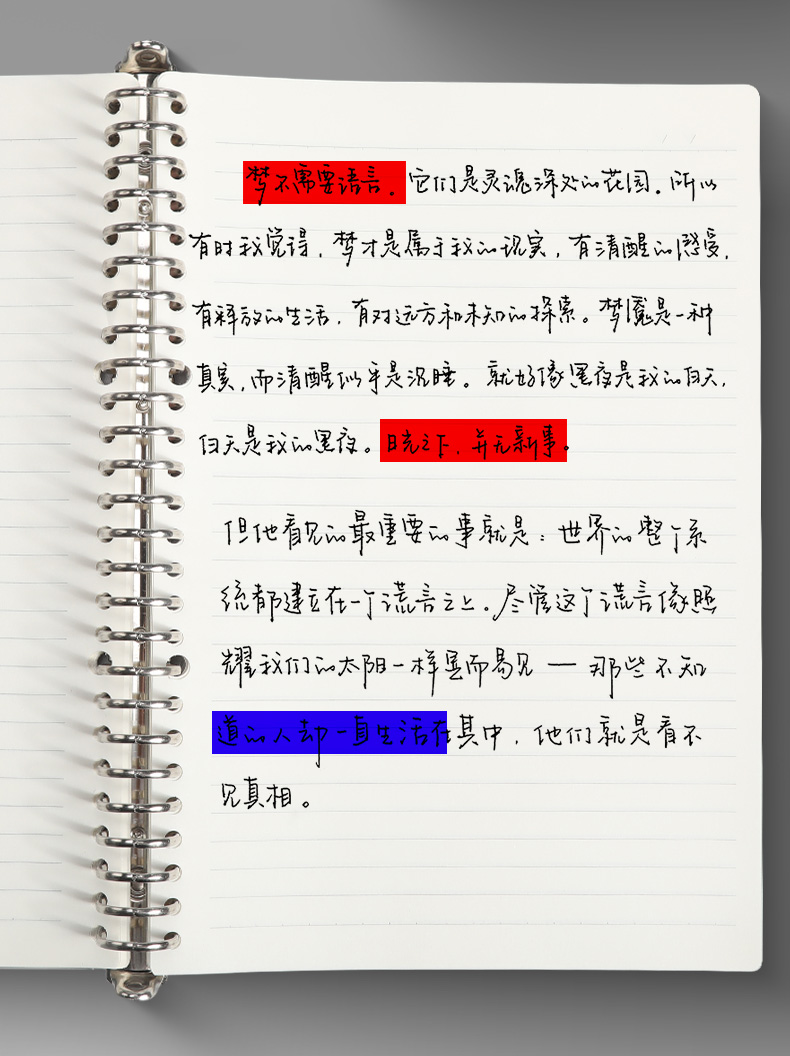 梦不需要语言。它们是灵魂深处的花园。所以
有时我觉得，梦才是属于我的现实，有清醒的感受，
有释放的生活，有对远方和未知的探索。梦魇是一种
真实，而清醒似乎是沉睡。就好像黑夜是我的白天，
白天是我的黑夜。日光之下，并无新事。
但他看见的最重要的事就是：世界的整个系
统都建立在一个谎言之上。尽管这个谎言像照
耀我们的太阳一样显而易见 — 那些不知
道的人却一直生活在其中，他们就是看不
见真相。